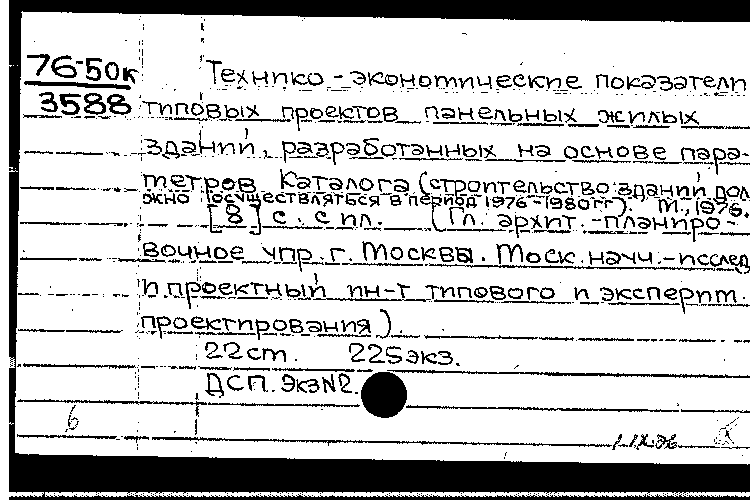 76-50к Технико-экономические показатели
3588 типовых проектов панельных жилых
зданий, разработанных на основе пара-
метров Каталога (строительство зданий дол
жно осуществляться в период 1976-1980гг). М., 1976.
[8] с. с ил. (Гл. архит.-планиро-
вочное упр. г. Москвы. Моск. науч.-исслед
и проектный ин-т типового и эксперим.
проектирования).
22см. 225экз.
ДСП. Экз№2.
б
1.IX.76